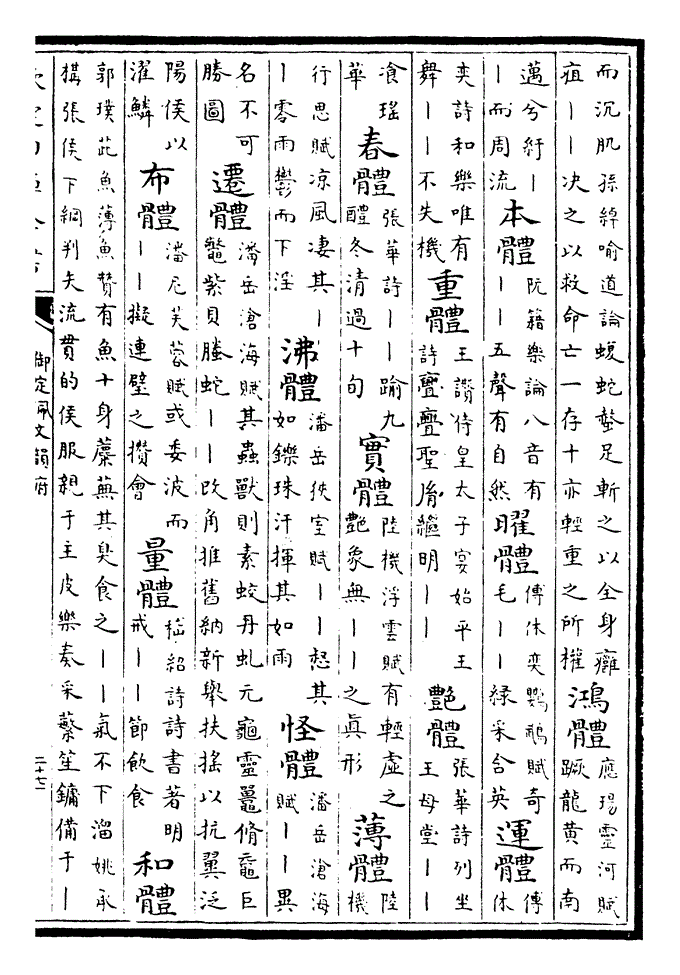 而沉肌孫綽喻道論蝮蛇螫足斬之以全身癰疽丨丨决之以救命亡一存十亦輕重之所權鴻體應瑒靈河賦蹶龍黃而南
邁兮紆丨丨而周流本體阮籍樂論八音有丨丨五聲有自然曜體傅休奕鸚鵡賦奇毛丨丨緑采含英運體傅休
奕詩和樂唯有舞丨丨不失機重體王讚侍皇太子宴始平王詩亹亹聖胤繼明丨丨艷體張華詩列坐王母堂丨丨
飡瑶華春體張華詩丨丨踰九醴冬清過十旬實體陸機浮雲賦有輕虛之艷象無丨丨之真形薄體陸機
行思賦凉風凄其丨丨零雨鬱而下淫沸體潘岳狹室賦丨丨怒其如鑠珠汗揮其如雨怪體潘岳滄海賦丨丨異
名不可勝圖遷體潘岳滄海賦其蟲獸則素蛟丹虬元龜靈鼉脩黿巨鼈紫貝螣蛇丨丨改角推舊納新舉扶搖以抗翼泛
陽侯以濯鱗布體潘尼芙蓉賦或委波而丨丨擬連璧之攅會量體嵇紹詩詩書著明戒丨丨節飲食和體
郭璞茈魚薄魚贊有魚十身蘪蕪其臭食之丨丨氣不下溜姚承構張侯下綱判矢流貫的侯服親于主皮樂奏采蘩笙鏞備于丨
欽定四庫全書
御定佩文韻府
二十七